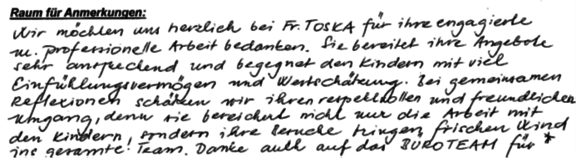 Raum für Anmerkungen:
Wir möchten uns herzlich bei Fr. TOSKA für ihre engagierte
u. professionelle Arbeit bedanken. Sie bereitet ihre Angebote
sehr ansprechend und begegnet den Kindern mit viel
Einfühlungsvermögen und Wertschätzung. Bei gemeinsamen
Reflexionen schätzen wir ihren respektvollen und freundlichen
Umgang, denn sie bereichert nicht nur die Arbeit mit
den Kindern, sondern ihre Besuche bringen frischen Wind
ins gesamte Team. Danke auch auf das BÜROTEAM für